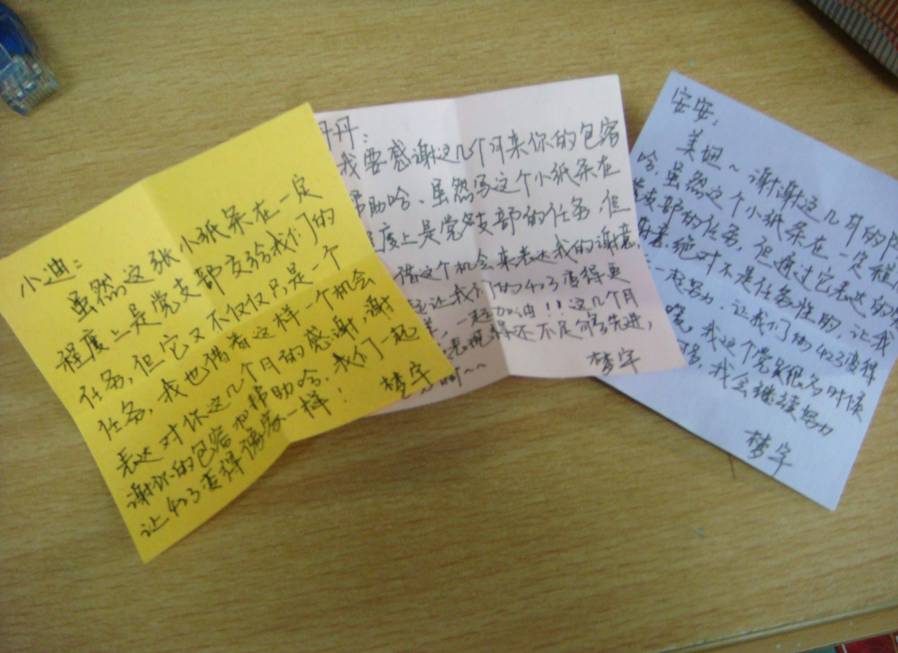 小迪：
虽然这张小纸条在一定
程度上是党支部交给我们的
任务，但它又不仅仅只是一个
任务，我也借着这样一个机会
表达对你这几个月的感谢，谢
谢你的包容和帮助哈，我们一起
让403变得像家一样！
梦宇
丹丹：
我要感谢这几个月来你的包容
帮助哈、虽然写这个小纸条在
程度上是党支部的任务，但
借这个机会来表达我的谢意，
让我们的403变得更
一起加油！！这几个月
表现得还不是够先进，
梦宇
安安：
美妞～谢谢这几月的
哈，虽然这个小纸条在一定程
党支部的任务，但通过它表达的
绝对不是任务性的，让我
一起努力，让我们的403变得
我这个党员很多时候
我会继续努力
梦宇